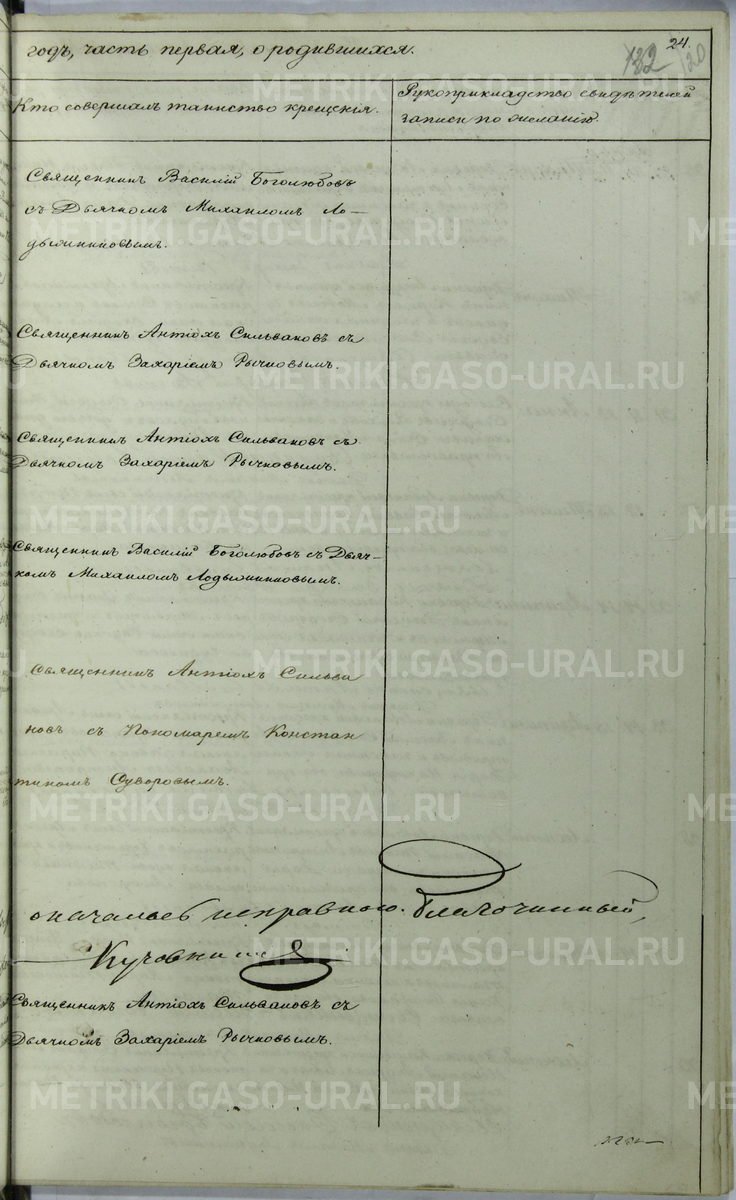 24.
182
120
годъ, часть первая, о родившихся.
Кто совершалъ таинство крещенія.
Рукоприкладство свидѣтелей
записи по желанію.
Священникъ Василій Боголюбовъ
съ Дьячкомъ Михаиломъ Ло-
дыжниковымъ.
Священникъ Антіохъ Сильвановъ съ
Дьячкомъ Захаріемъ Рычковымъ.
Священникъ Антіохъ Сильвановъ съ
Дьячкомъ Захаріемъ Рычковымъ.
Священникъ Василій Боголюбовъ съ Дьяч-
комъ Михаиломъ Лодыжниковымъ.
Священникъ Антіохъ Сильва
новъ съ Пономаремъ Констан
тиномъ Суворовымъ.
исправною. Благочинный,
Священникъ Антіохъ Сильвановъ съ
Дьячкомъ Захаріемъ Рычковымъ.
METRIKI.GASO-URAL.RU